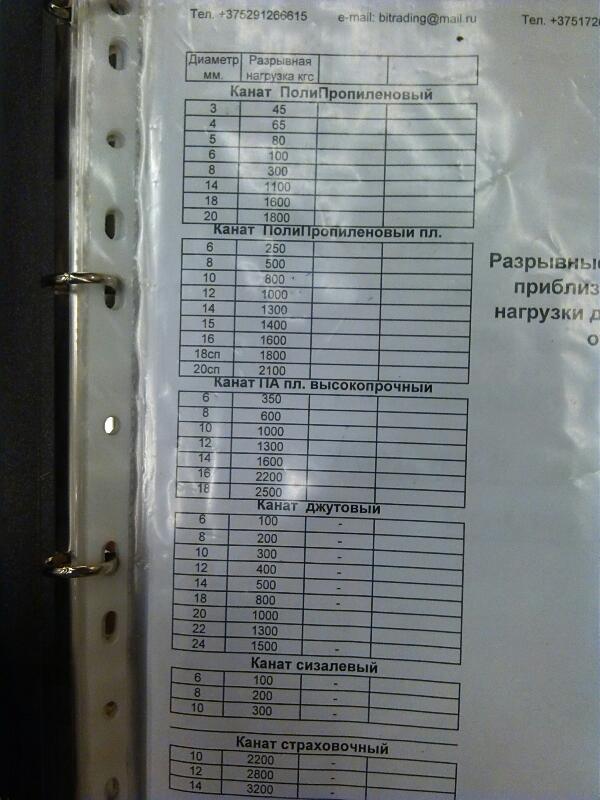 Тел. +375291266615 e-mail: bitrading@mail.ru Тел. +3751726
Диаметр мм. Разрывная нагрузка кгс
Канат ПолиПропиленовый
3 45
4 65
5 80
6 100
8 300
14 1100
18 1600
20 1800
Канат ПолиПропиленовый пл.
6 250
8 500
10 800
12 1000
14 1300
15 1400
16 1600
18сп 1800
20сп 2100
Канат ПА пл. высокопрочный
6 350
8 600
10 1000
12 1300
14 1600
16 2200
18 2500
Канат джутовый
6 100 -
8 200 -
10 300 -
12 400 -
14 500 -
18 800 -
20 1000
22 1300
24 1500 -
Канат сизалевый
6 100 -
8 200 -
10 300 -
Канат страховочный
10 2200 -
12 2800 -
14 3200 -
Разрывные
приблиз
нагрузки д
о